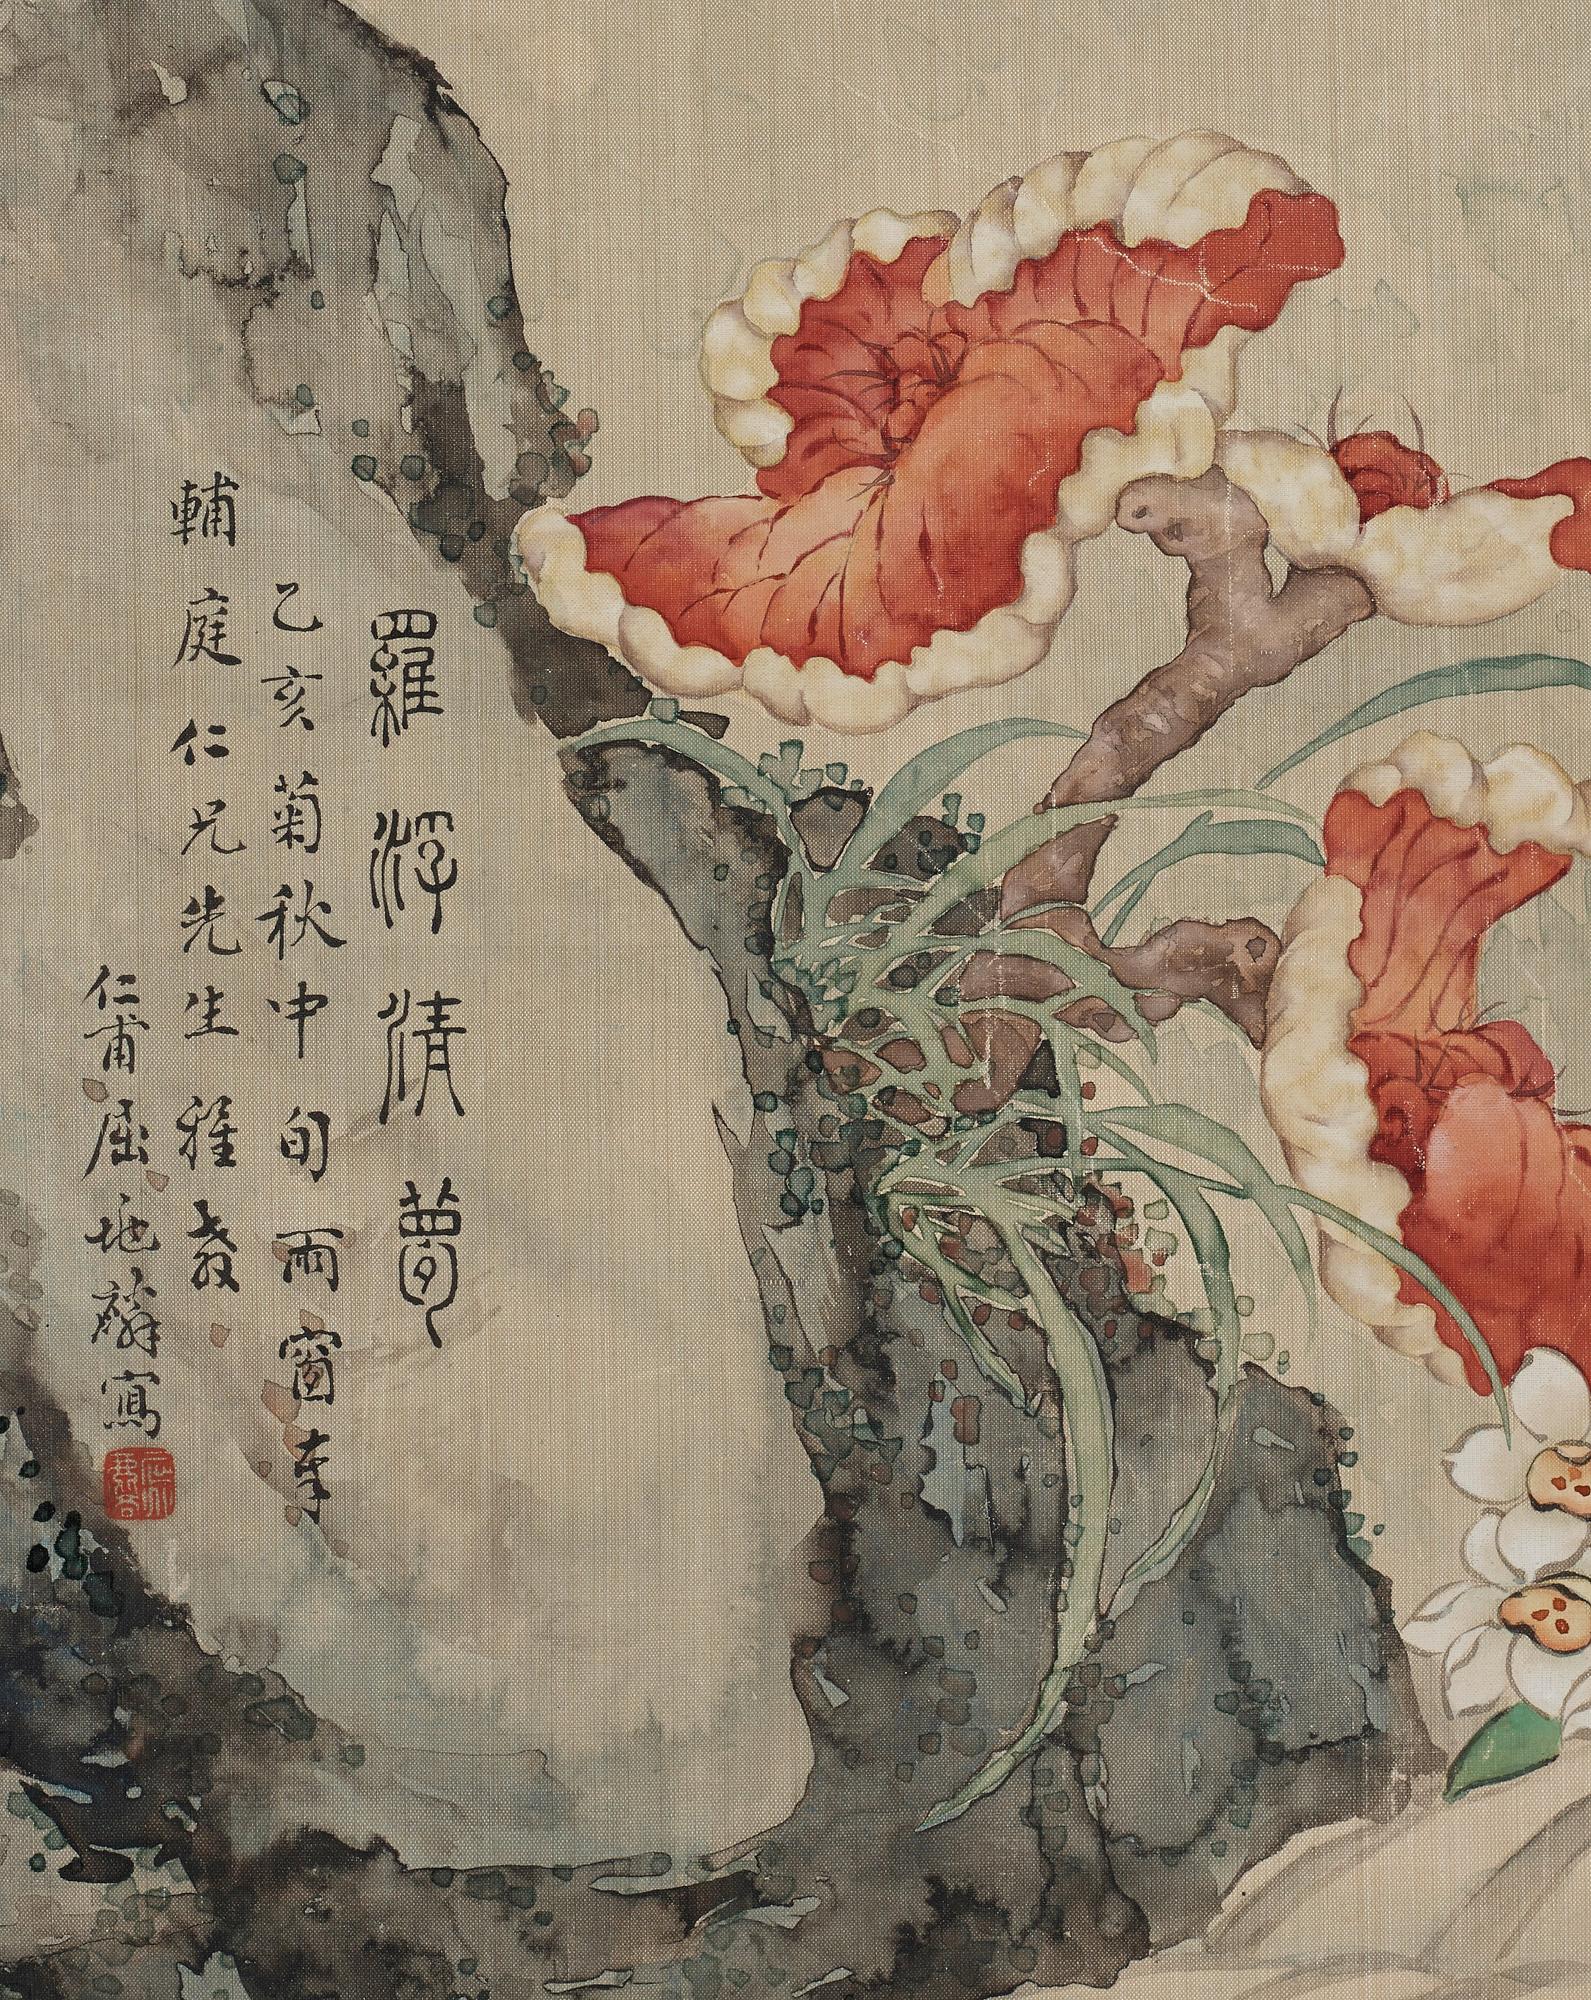 羅浮清夢
乙亥菊秋中旬雨窗奉
輔庭仁兄先生雅教
仁甫屈兆麟寫